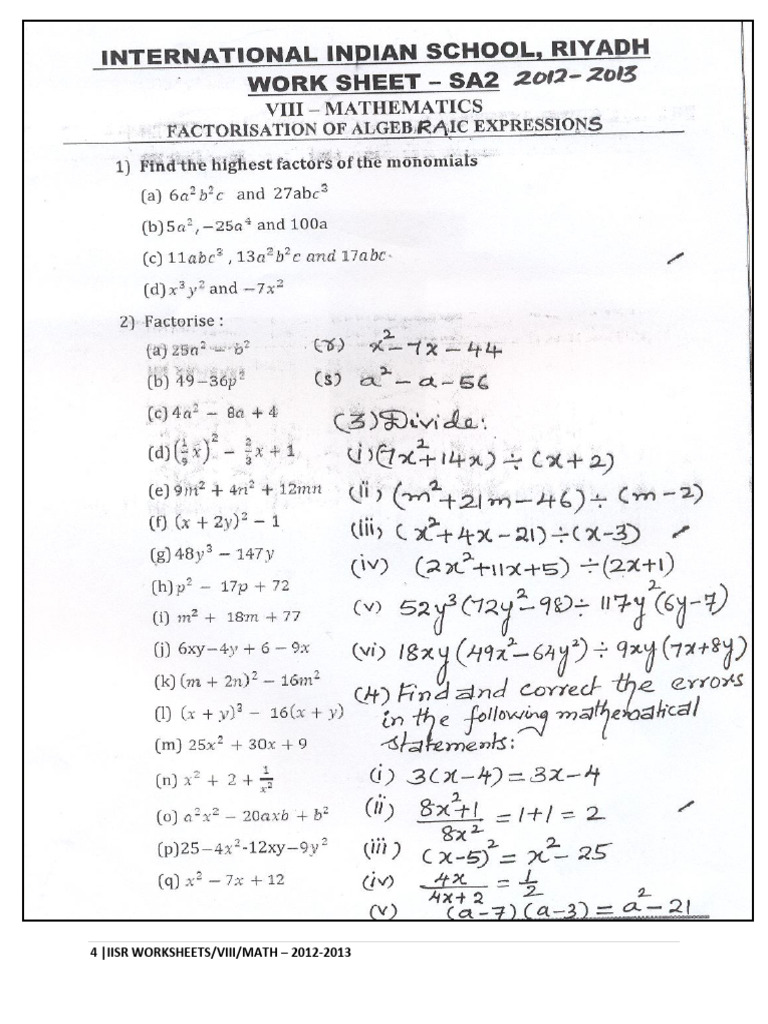 INTERNATIONAL INDIAN SCHOOL, RIYADH
WORK SHEET – SA2 2012-2013
VIII – MATHEMATICS
FACTORISATION OF ALGEBRAIC EXPRESSIONS
1) Find the highest factors of the monomials
(a) 6a²b²c and 27abc³
(b) 5a², −25a⁴ and 100a
(c) 11abc³ , 13a²b²c and 17abc
(d) x³y² and −7x²
2) Factorise :
(a) 25a² − b²
(b) 49−36p²
(c) 4a² − 8a + 4
(d) (1/9 x)² − 2/3 x + 1
(e) 9m² + 4n² + 12mn
(f) (x + 2y)² − 1
(g) 48y³ − 147y
(h) p² − 17p + 72
(i) m² + 18m + 77
(j) 6xy−4y + 6 − 9x
(k) (m + 2n)² − 16m²
(l) (x + y)³ − 16(x + y)
(m) 25x² + 30x + 9
(n) x² + 2 + 1/x²
(o) a²x² − 20axb + b²
(p) 25−4x²-12xy−9y²
(q) x² − 7x + 12
(r) x² − 7x − 44
(s) a² − a − 56
(3) Divide:
(i) (7x²+14x) ÷ (x+2)
(ii) (m²+21m−46) ÷ (m−2)
(iii) (x²+4x−21) ÷ (x−3)
(iv) (2x²+11x+5) ÷ (2x+1)
(v) 52y³(72y²−98) ÷ 117y²(6y−7)
(vi) 18xy(49x²−64y²) ÷ 9xy(7x+8y)
(4) Find and correct the errors
in the following mathematical
statements:
(i) 3(x−4) = 3x−4
(ii) 8x²+1/8x² = 1+1 = 2
(iii) (x−5)² = x²−25
(iv) 4x/4x+2 = 1/2
(v) (a−7)(a−3) = a²−21
4 |IISR WORKSHEETS/VIII/MATH – 2012-2013